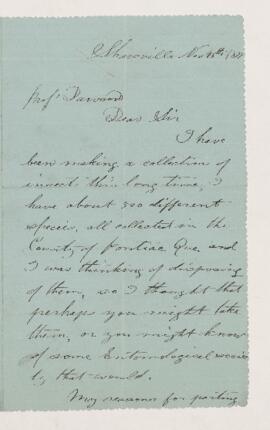 Shawville Nov
Prof
Dear Sir
I have
been making a collection of
insects this long time, I
have about 500 different
species, all collected in the
County of Pontiac Que. and
I was thinking of disposing
of them, so I thought that
perhaps you might take
them, or you might know
of some Entomological socie
ty that would.
My reasons for parting